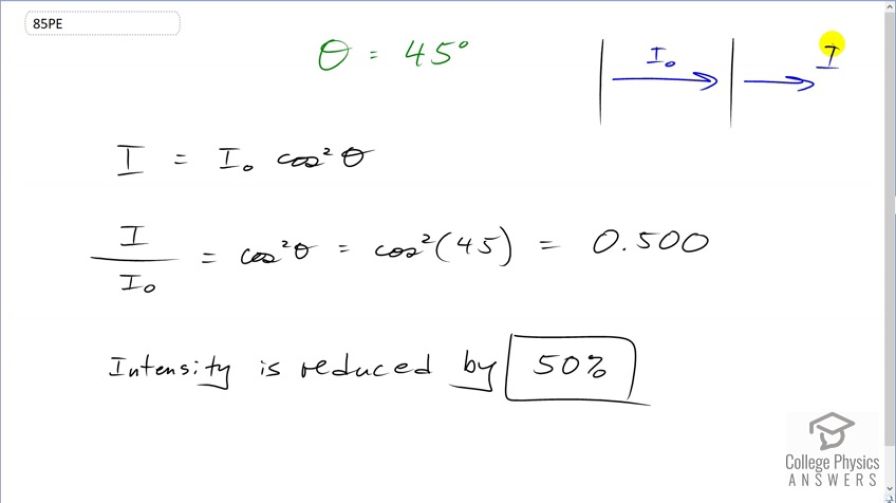 85PE
θ = 45°
I₀ I
I = I₀ cos²θ
I/I₀ = cos²θ = cos²(45) = 0.500
Intensity is reduced by 50%
College Physics
ANSWERS